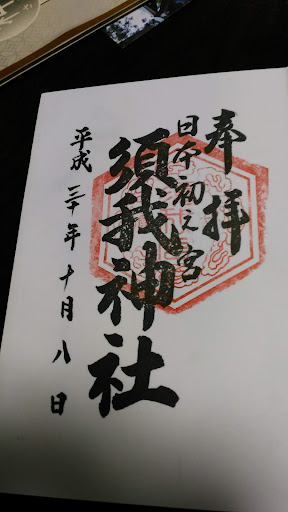 奉拝
日本初之宮
須我神社
平成三十年十月八日